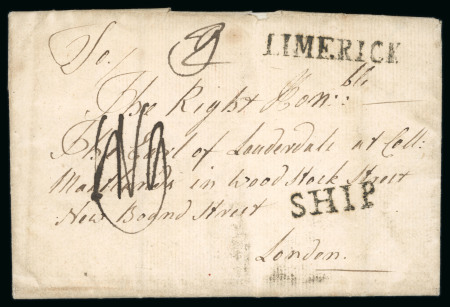 LIMERICK
To
The Right Hon:ble
The Earl of Lauderdale at Coll:
Maitlands in Wood Stock Street
New Boond Street
SHIP
London.